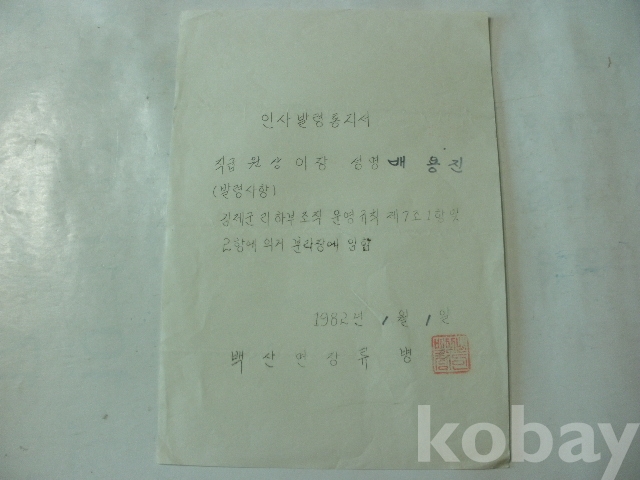 인사발령통지서
직급 원상이장 성명 배용진
(발령사항)
김제군 리하부조직 운영규칙 제7조1항및
2항에 의거 분락장에 임함
1982년 1월 1일
백산면장 류 병
kobay